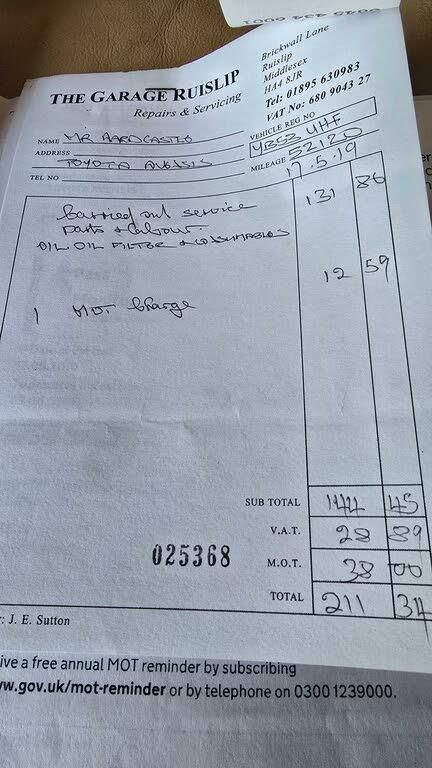 THE GARAGE RUISLIP
Repairs & Servicing
Brickwall Lane
Ruislip
Middlesex
HA4 8JR
Tel: 01895 630983
VAT No: 680 9043 27
NAME MR
ADDRESS TOYOTA AVENSIS
TEL NO
VEHICLE REG NO
MILEAGE 52120
17.5.19
Carried out service 131 86
Parts & Labour.
OIL OIL FILTER & CONSUMABLES
12 59
1 MOT Charge
SUB TOTAL 144 45
V.A.T. 28 89
025368
M.O.T. 38 00
TOTAL 211 34
: J. E. Sutton
ive a free annual MOT reminder by subscribing
w.gov.uk/mot-reminder or by telephone on 0300 1239000.